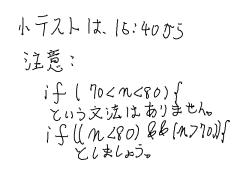 小テストは、16:40から
注意:
if ( 70<n<80) {
という文法はありません。
if((n<80) && (n>70)){
としましょう。